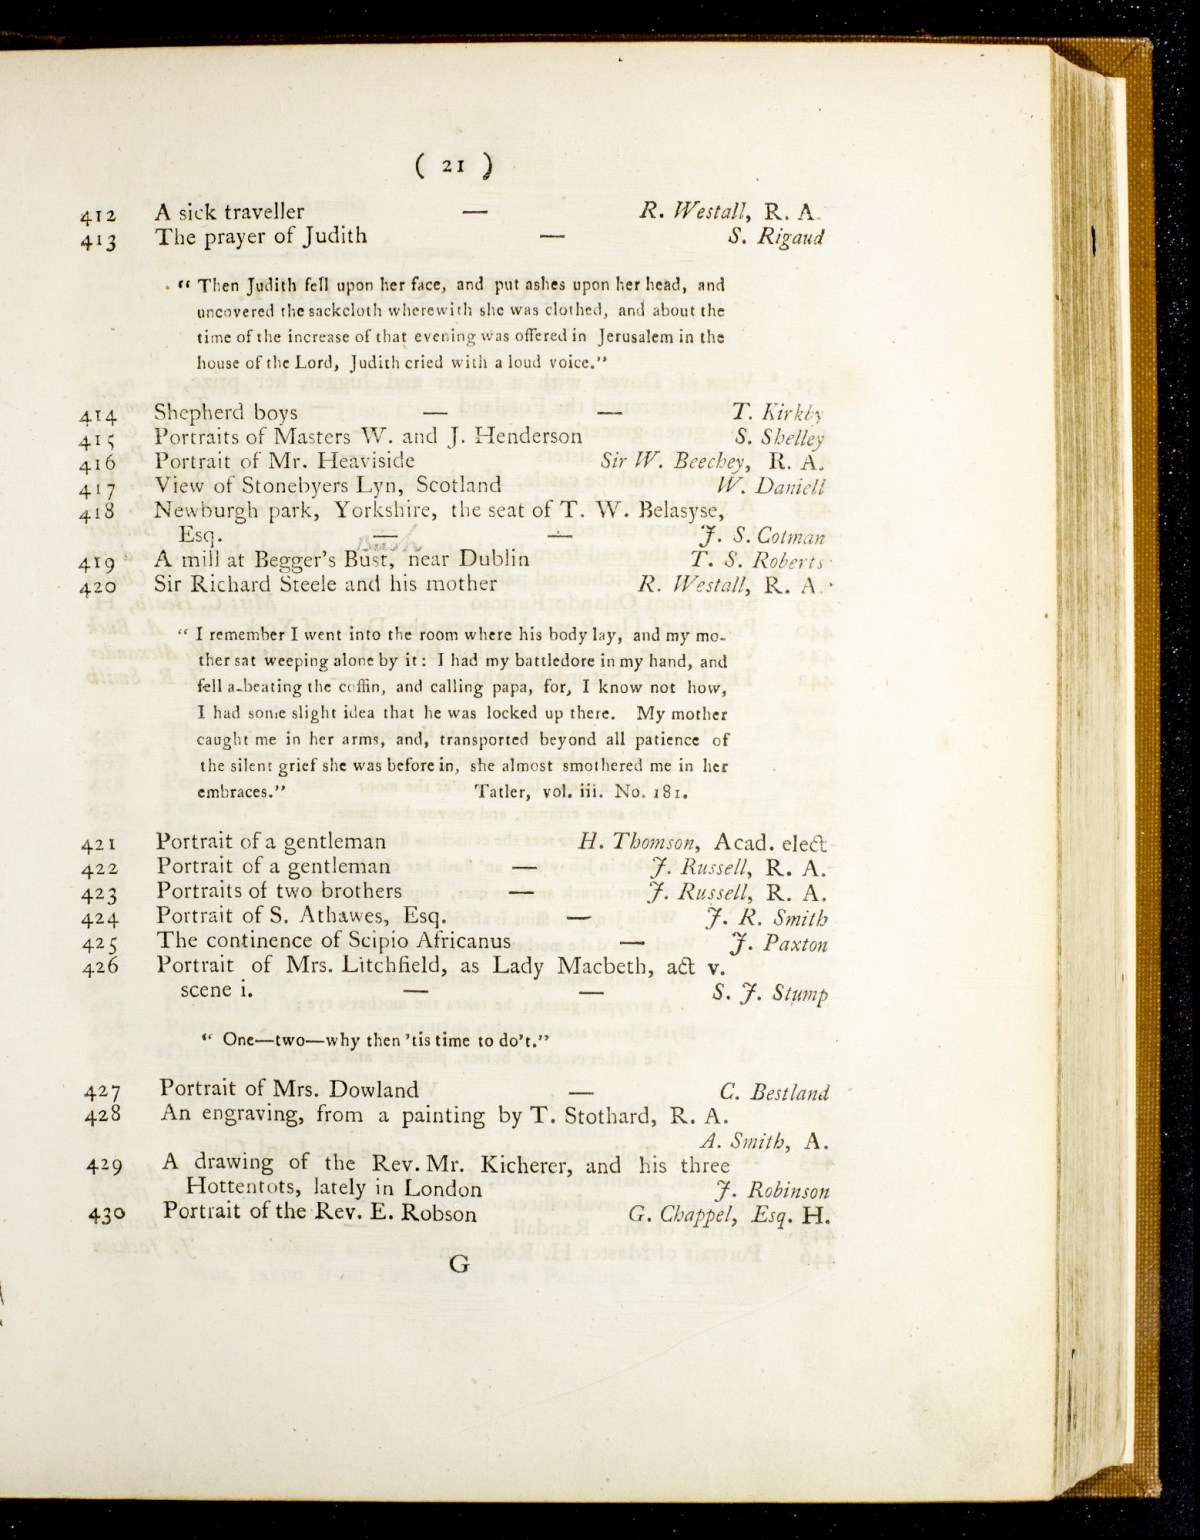 ( 21 )
412 A sick traveller — R. Westall, R. A.
413 The prayer of Judith — S. Rigaud
“ Then Judith fell upon her face, and put ashes upon her head, and
uncovered the sackcloth wherewith she was clothed, and about the
time of the increase of that evening was offered in Jerusalem in the
house of the Lord, Judith cried with a loud voice.”
414 Shepherd boys — — T. Kirkby
415 Portraits of Masters W. and J. Henderson S. Shelley
416 Portrait of Mr. Heaviside Sir W. Beechey, R. A.
417 View of Stonebyers Lyn, Scotland W. Daniell
418 Newburgh park, Yorkshire, the seat of T. W. Belasyse,
Esq. — — J. S. Cotman
Bush
419 A mill at Begger's Bust, near Dublin T. S. Roberts
420 Sir Richard Steele and his mother R. Westall, R. A.
“ I remember I went into the room where his body lay, and my mo-
ther sat weeping alone by it: I had my battledore in my hand, and
fell a-beating the coffin, and calling papa, for, I know not how,
I had some slight idea that he was locked up there. My mother
caught me in her arms, and, transported beyond all patience of
the silent grief she was before in, she almost smothered me in her
embraces.” Tatler, vol. iii. No. 181.
421 Portrait of a gentleman H. Thomson, Acad. elect
422 Portrait of a gentleman — J. Russell, R. A.
423 Portraits of two brothers — J. Russell, R. A.
424 Portrait of S. Athawes, Esq. — J. R. Smith
425 The continence of Scipio Africanus — J. Paxton
426 Portrait of Mrs. Litchfield, as Lady Macbeth, act v.
scene i. — — S. J. Stump
“ One—two—why then 'tis time to do't.”
427 Portrait of Mrs. Dowland — C. Bestland
428 An engraving, from a painting by T. Stothard, R. A.
A. Smith, A.
429 A drawing of the Rev. Mr. Kicherer, and his three
Hottentots, lately in London J. Robinson
430 Portrait of the Rev. E. Robson G. Chappel, Esq. H.
G